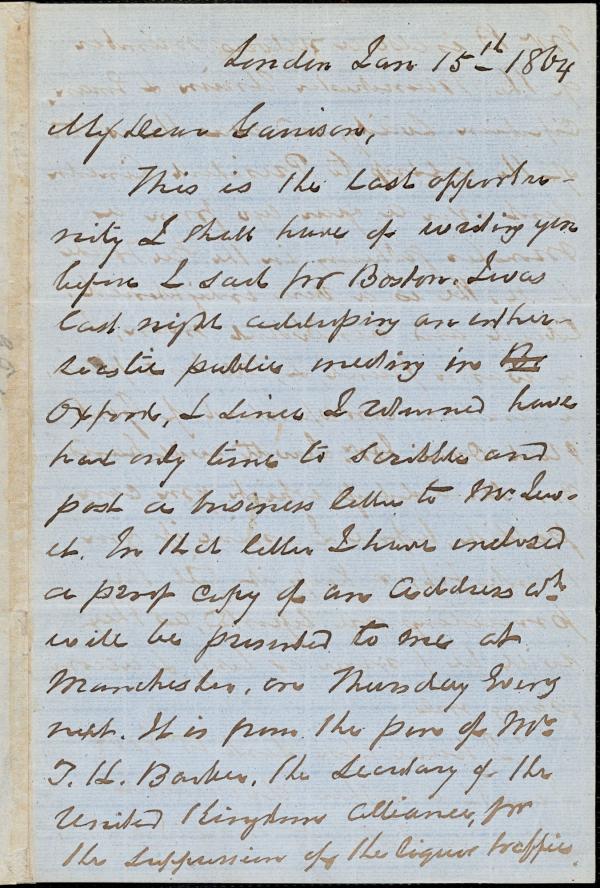 London Jan 15th 1864
My Dear Garrison,
This is the last opportu-
nity I shall have of writing you
before I sail for Boston. I was
last night addressing an enthu-
siastic public meeting in Br
Oxford, & since I returned have
had only time to scribble and
post a business letter to Mr.
et. In that letter I have enclosed
a proof copy of an Address wh.
will be presented to me at
Manchester, on Thursday Eveng
next. It is from the pen of Mr.
T. H. Barker, the Secretary of the
United Kingdom Alliance, for
the suppression of the liquor traffic.